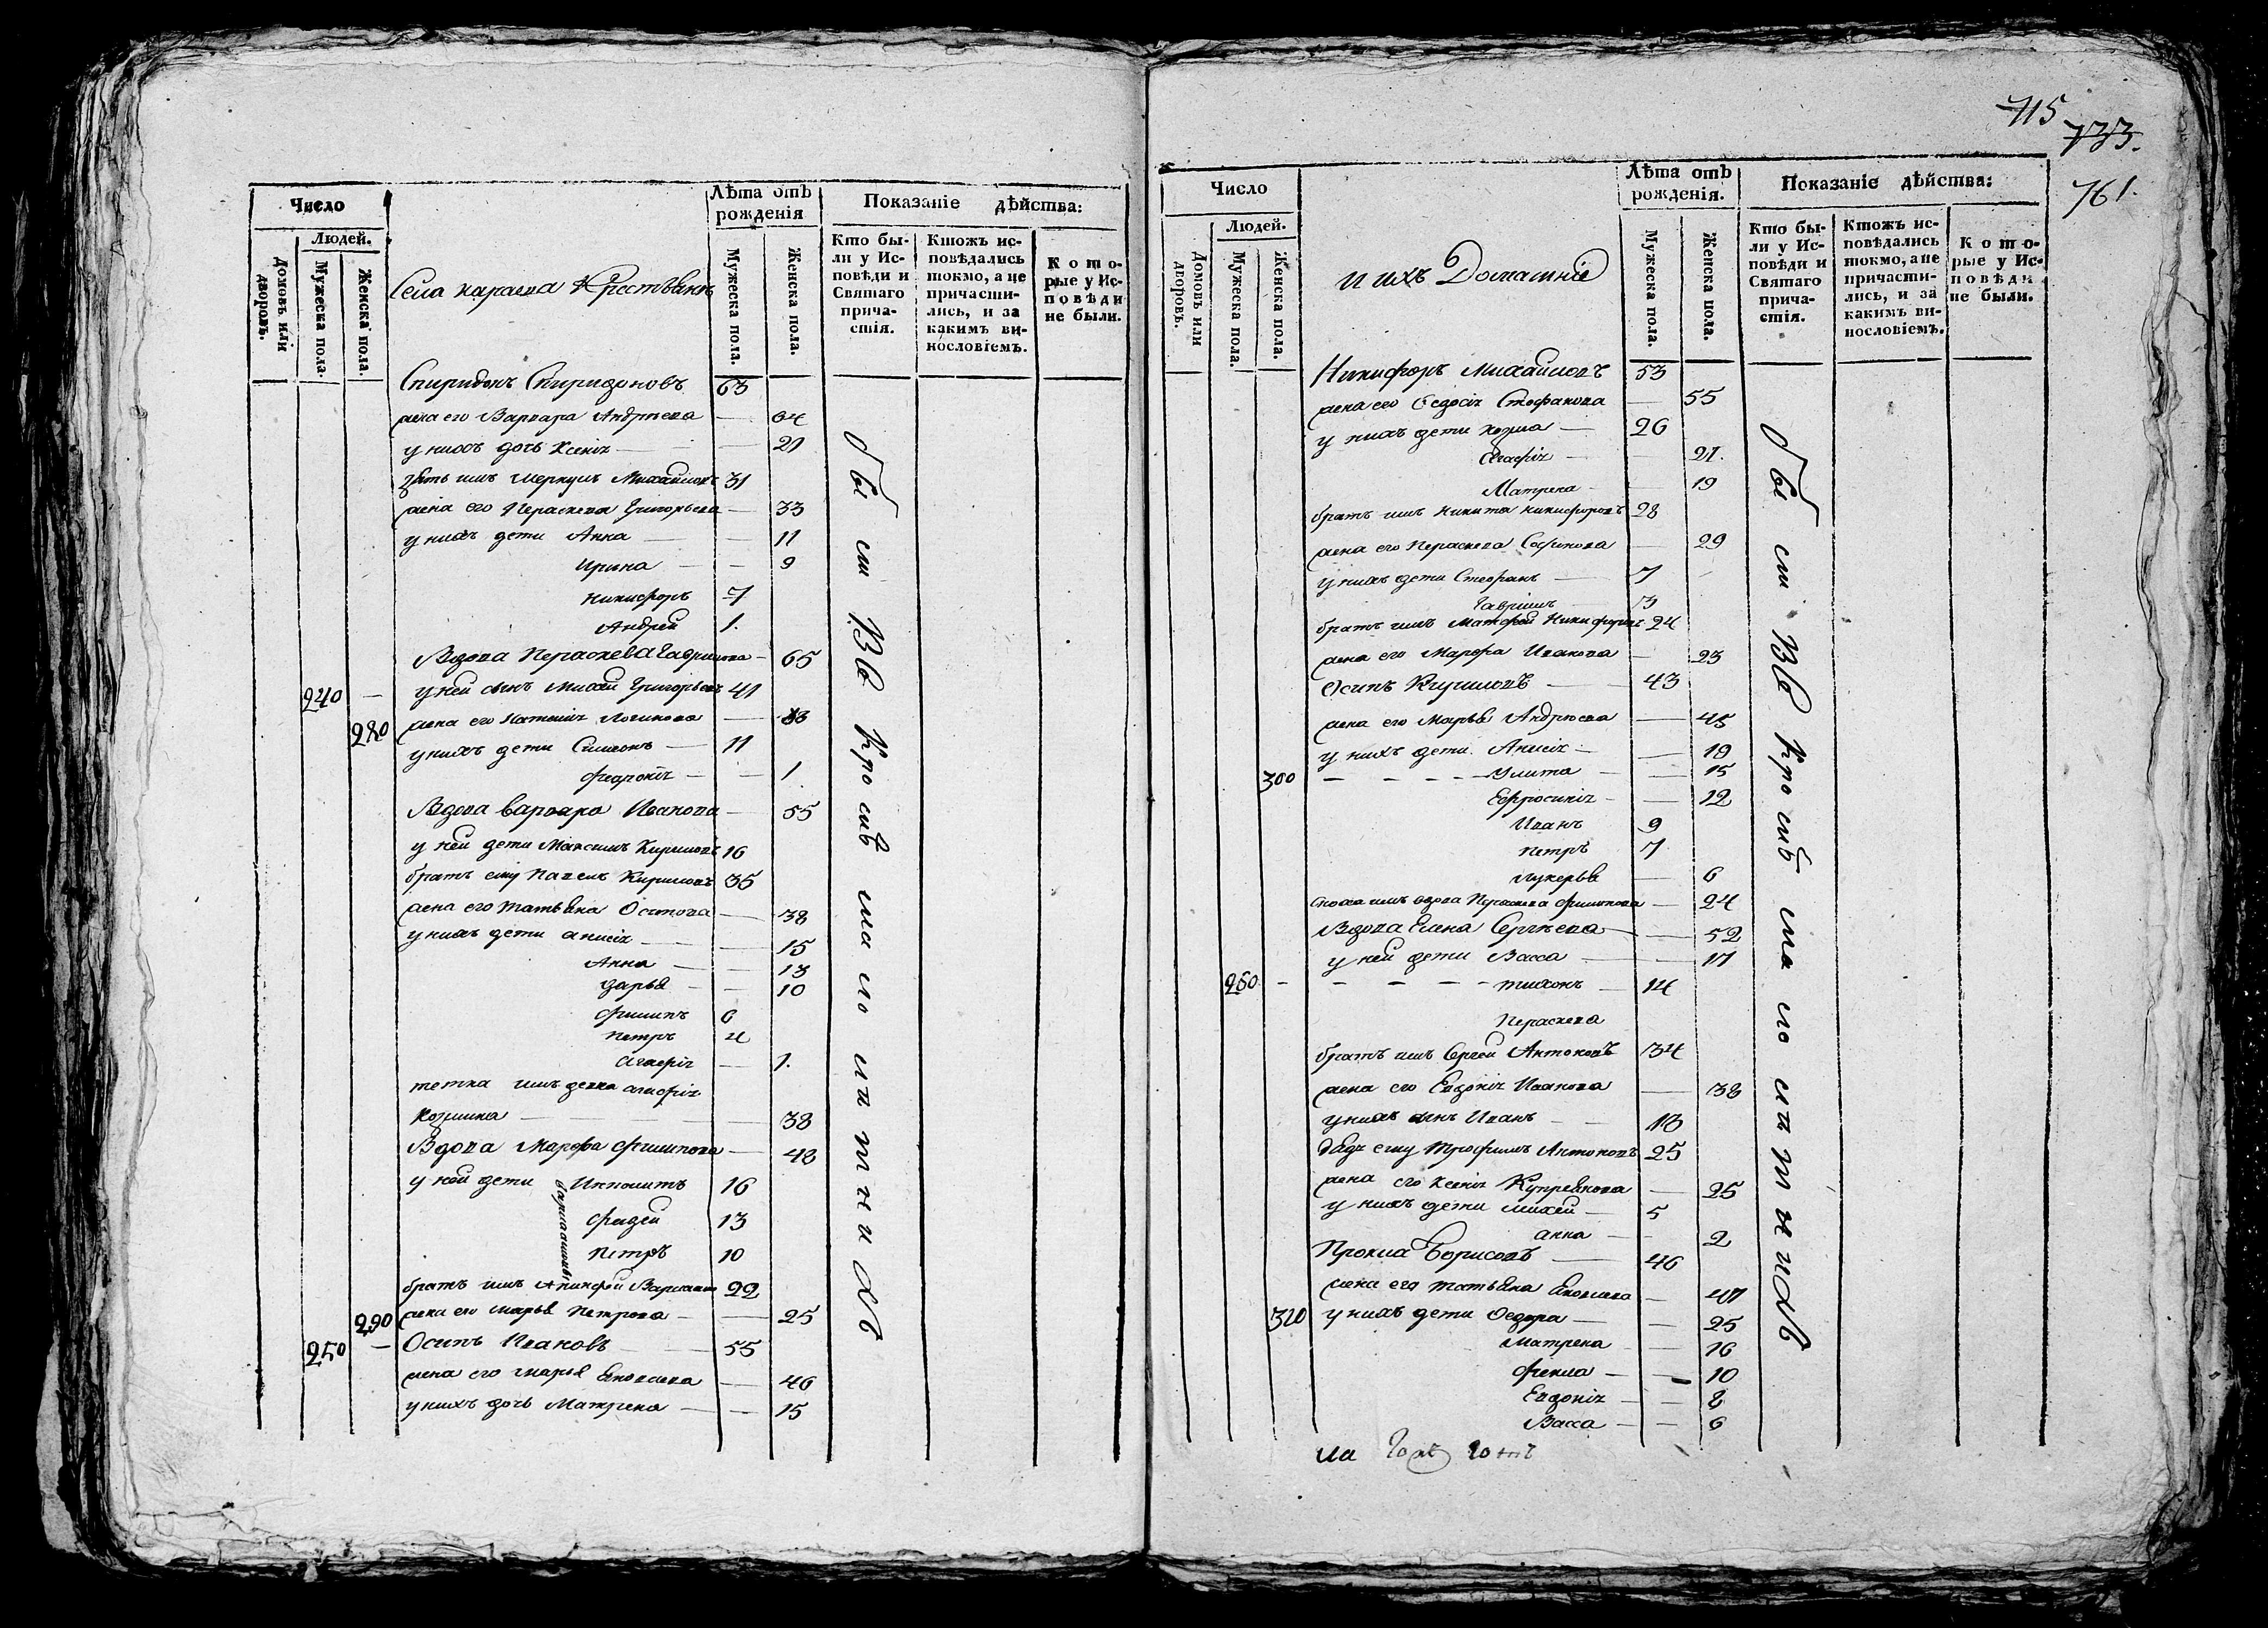 Число
Людей.
Домовъ или дворовъ.
Мужеска пола.
Женска пола.
Села караша Крестьянъ
Лѣта отъ рожденія
Мужеска пола.
Женска пола.
Показаніе дѣйства:
Кто бы-
ли у Ис-
повѣди и
Святаго
прича-
стія.
Ктожъ ис-
повѣдались
токмо, а не
причасти-
лись, и за
какимъ ви-
нословіемъ.
К о т о-
рые у Ис-
п о в ѣ д и
не были.
Спиридонъ Спиридоновъ 63
жена его Варвара Андрѣева — 64
у нихъ дочь Ксенія — 21
зять имъ Меркулъ Михайловъ 31
жена его Параскева Григорьева — 33
у нихъ дети Анна — 11
Ирина — 9
Никифоръ 7
Андрей 1.
Вдова Параскева Гаврилова — 65
240 — у ней сынъ Михей Григорьевъ 41
280 жена его Наталія Логинова — 33
у нихъ дети Симеонъ — 11
Февронія — 1
Вдова Варвара Иванова — 55
у ней дети Максимъ Кириловъ 16
братъ ему Павелъ Кириловъ 35
жена его татьяна Осипова — 38
у нихъ дети анисія — 15
Анна — 13
дарья — 10
Филипъ 6
Петръ 4
Агафія — 1.
тетка имъ девка агафія
Козмина — 38
Вдова Марфа Филипова — 48
у ней дети Ипполитъ 16
Фадей 13
Петръ 10
братъ имъ 22
290 жена его марья Петрова — 25
250 — Осипъ Ивановъ 55
жена его марья Яковлева — 46
у нихъ дочь Матрена — 15
715
733.
761.
Число
Людей.
Домовъ или дворовъ.
Мужеска пола.
Женска пола.
и ихъ Домашніе
Лѣта отъ рожденія.
Мужеска пола.
Женска пола.
Показаніе дѣйства:
Кто бы-
ли у Ис-
повѣди и
Святаго
прича-
стія.
Ктожъ ис-
повѣдались
токмо, а не
причасти-
лись, и за
какимъ ви-
нословіемъ.
К о т о-
рые у Ис-
п о в ѣ д и
не были.
Никифоръ Михайловъ 53
жена его Федосія Стефанова — 55
у нихъ дети козма — 26
Агафія — 21.
Матрена — 19
братъ имъ Никита Никифоровъ 28
жена его Параскева — 29
у нихъ дети Стефанъ — 7
Гаврилъ 3
братъ имъ Матфей Никифоровъ 24
жена его Марфа Иванова — 23
Осипъ Кириловъ — 43
жена его Марья Андрѣева — 45
у нихъ дети. Анисія — 18
300 — — — — Улита — 15
Евфросинія — 12
Иванъ 9
Петръ 7
лукерья — 6
сноха имъ вдова Параскева Филипова — 24
Вдова Елена Сергѣева — 52
у ней дети Васса — 17
260 — — — — тихонъ — 14
Параскева
братъ имъ Сергей Антоновъ 34
жена его Евдокія Иванова — 38
у нихъ сынъ Иванъ — 13
дядя ему Трофимъ Антоновъ 25
жена его Ксенія Купреянова — 25
у нихъ дети михей — 5
анна — 2
Прокла Борисовъ — 46
жена его татьяна Яковлева — 47
310 у нихъ дети Федора — 25
Матрена — 16
Фекла — 10
Евдокія — 8
Васса — 6